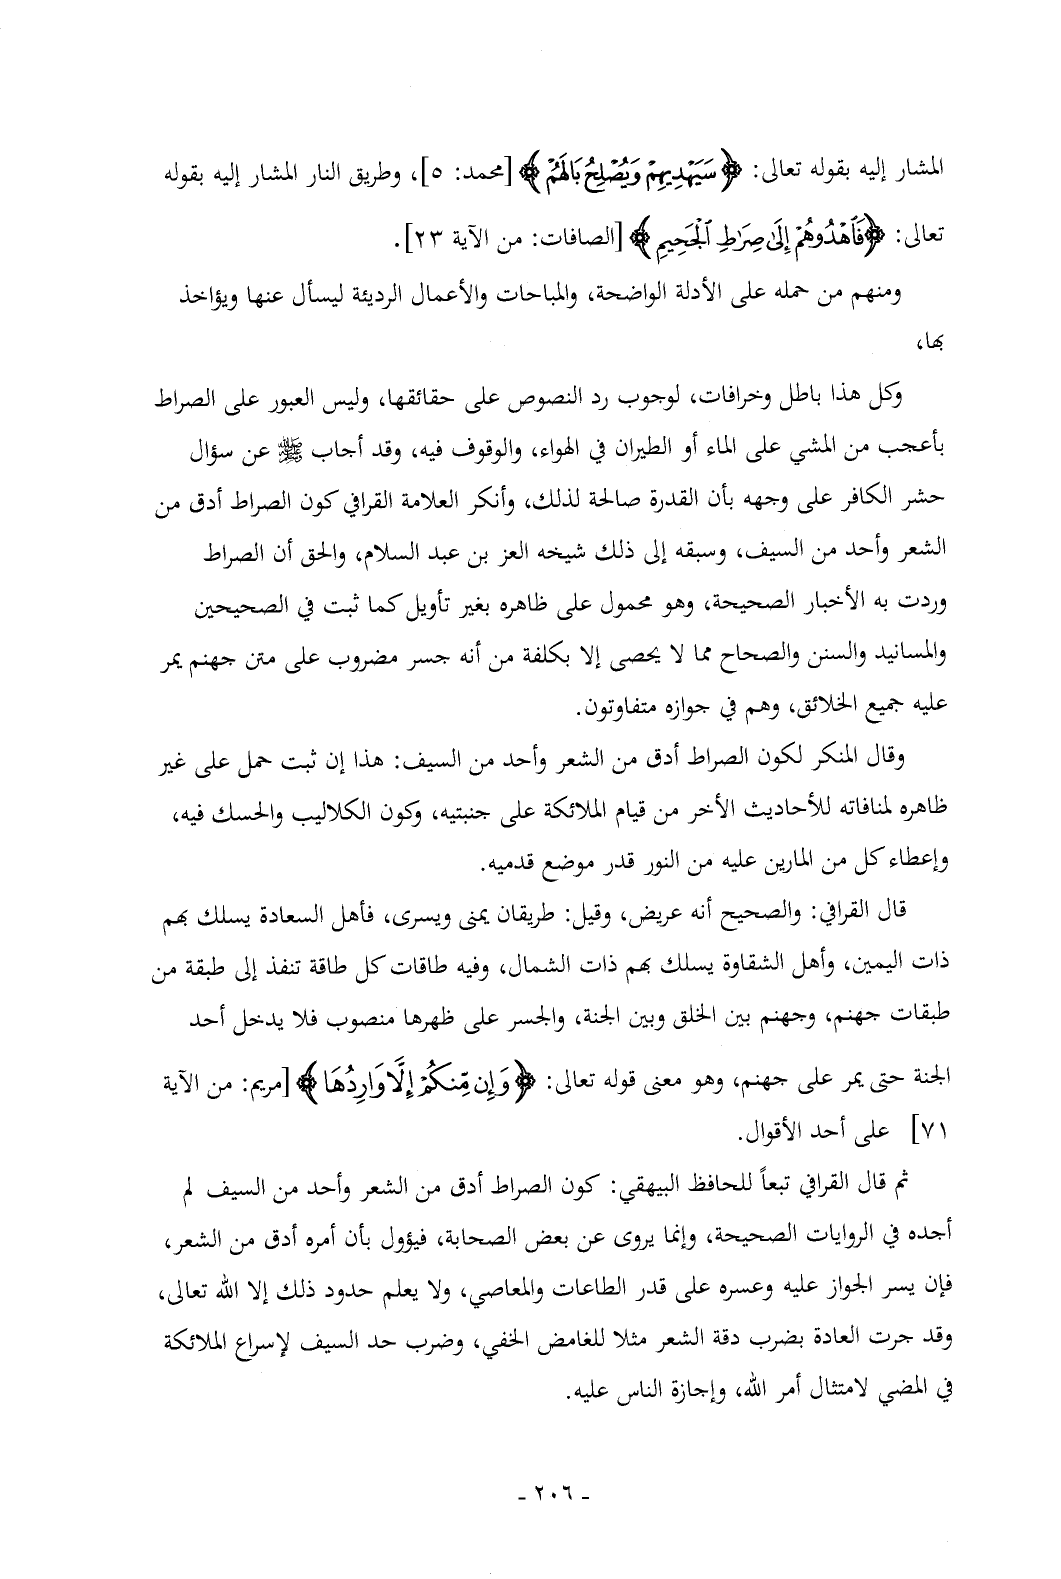 المشار إليه بقوله تعالى: ﴿سَيَهْدِيهِمْ وَيُصْلِحُ بَالَهُمْ﴾ [محمد: ٥]، وطريق النار المشار إليه بقوله
تعالى: ﴿فَٱهْدُوهُمْ إِلَىٰ صِرَٰطِ ٱلْجَحِيمِ﴾ [الصافات: من الآية ٢٣].
ومنهم من حمله على الأدلة الواضحة، والمباحات والأعمال الرديئة ليسأل عنها ويؤاخذ
بها،
وكل هذا باطل وخرافات، لوجوب رد النصوص على حقائقها، وليس العبور على الصراط
بأعجب من المشي على الماء أو الطيران في الهواء، والوقوف فيه، وقد أجاب ﷺ عن سؤال
حشر الكافر على وجهه بأن القدرة صالحة لذلك، وأنكر العلامة القرافي كون الصراط أدق من
الشعر وأحد من السيف، وسبقه إلى ذلك شيخه العز بن عبد السلام، والحق أن الصراط
وردت به الأخبار الصحيحة، وهو محمول على ظاهره بغير تأويل كما ثبت في الصحيحين
والمسانيد والسنن والصحاح مما لا يحصى إلا بكلفة من أنه جسر مضروب على متن جهنم يمر
عليه جميع الخلائق، وهم في جوازه متفاوتون.
وقال المنكر لكون الصراط أدق من الشعر وأحد من السيف: هذا إن ثبت حمل على غير
ظاهره لمنافاته للأحاديث الأخر من قيام الملائكة على جنبتيه، وكون الكلاليب والحسك فيه،
وإعطاء كل من المارين عليه من النور قدر موضع قدميه.
قال القرافي: والصحيح أنه عريض، وقيل: طريقان يمنى ويسرى، فأهل السعادة يسلك بهم
ذات اليمين، وأهل الشقاوة يسلك بهم ذات الشمال، وفيه طاقات كل طاقة تنفذ إلى طبقة من
طبقات جهنم، وجهنم بين الخلق وبين الجنة، والجسر على ظهرها منصوب فلا يدخل أحد
الجنة حتى يمر على جهنم، وهو معنى قوله تعالى: ﴿وَإِن مِّنكُمْ إِلَّا وَارِدُهَا﴾ [مريم: من الآية
٧١] على أحد الأقوال.
ثم قال القرافي تبعاً للحافظ البيهقي: كون الصراط أدق من الشعر وأحد من السيف لم
أجده في الروايات الصحيحة، وإنما يروى عن بعض الصحابة، فيؤول بأن أمره أدق من الشعر،
فإن يسر الجواز عليه وعسره على قدر الطاعات والمعاصي، ولا يعلم حدود ذلك إلا الله تعالى،
وقد جرت العادة بضرب دقة الشعر مثلا للغامض الخفي، وضرب حد السيف لإسراع الملائكة
في المضي لامتثال أمر الله، وإجازة الناس عليه.
- ٢٠٦ -